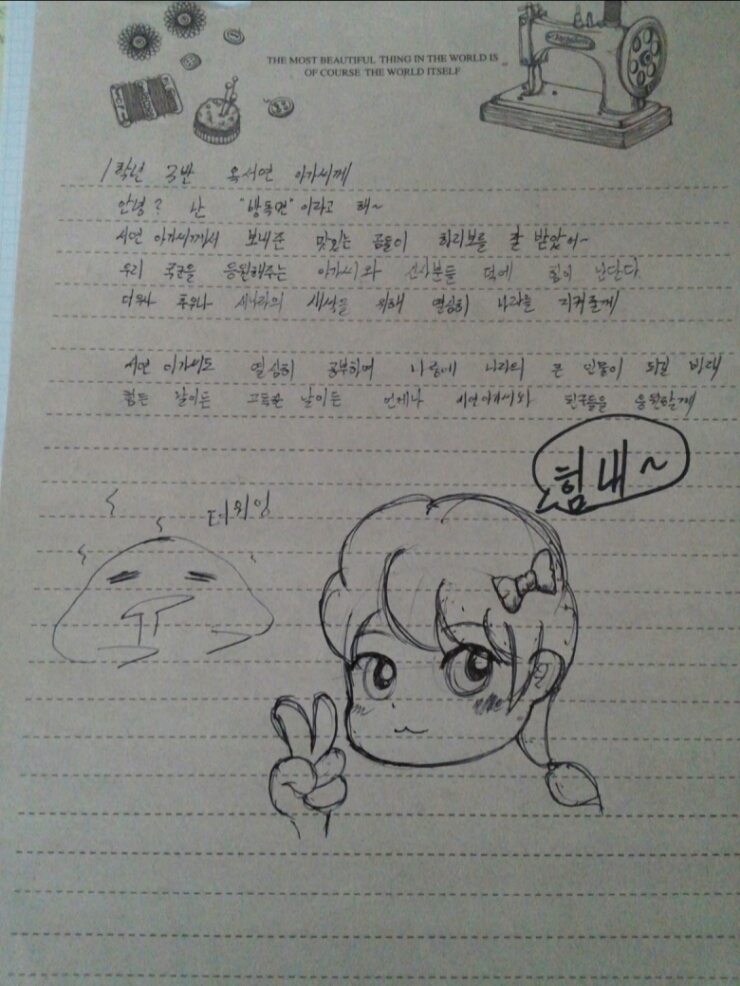 THE MOST BEAUTIFUL THING IN THE WORLD IS
OF COURSE THE WORLD ITSELF
1학년 3반 옥서연 아가씨께
안녕? 난 "방독면"이라고 해~
서연 아가씨께서 보내준 맛있는 곰돌이 하리보를 잘 받았어~
우리 국군을 응원해주는 아가씨와 선생분들 덕에 힘이 난단다.
더우나 추우나 새나라의 새싹을 위해 열심히 나라를 지켜줄게
서연 아가씨도 열심히 공부하며 나중에 나라의 큰 인물이 되길 바래
힘든 날이든 고독한 날이든 언제나 서연아가씨와 친구들을 응원할게
힘내~
더워잉